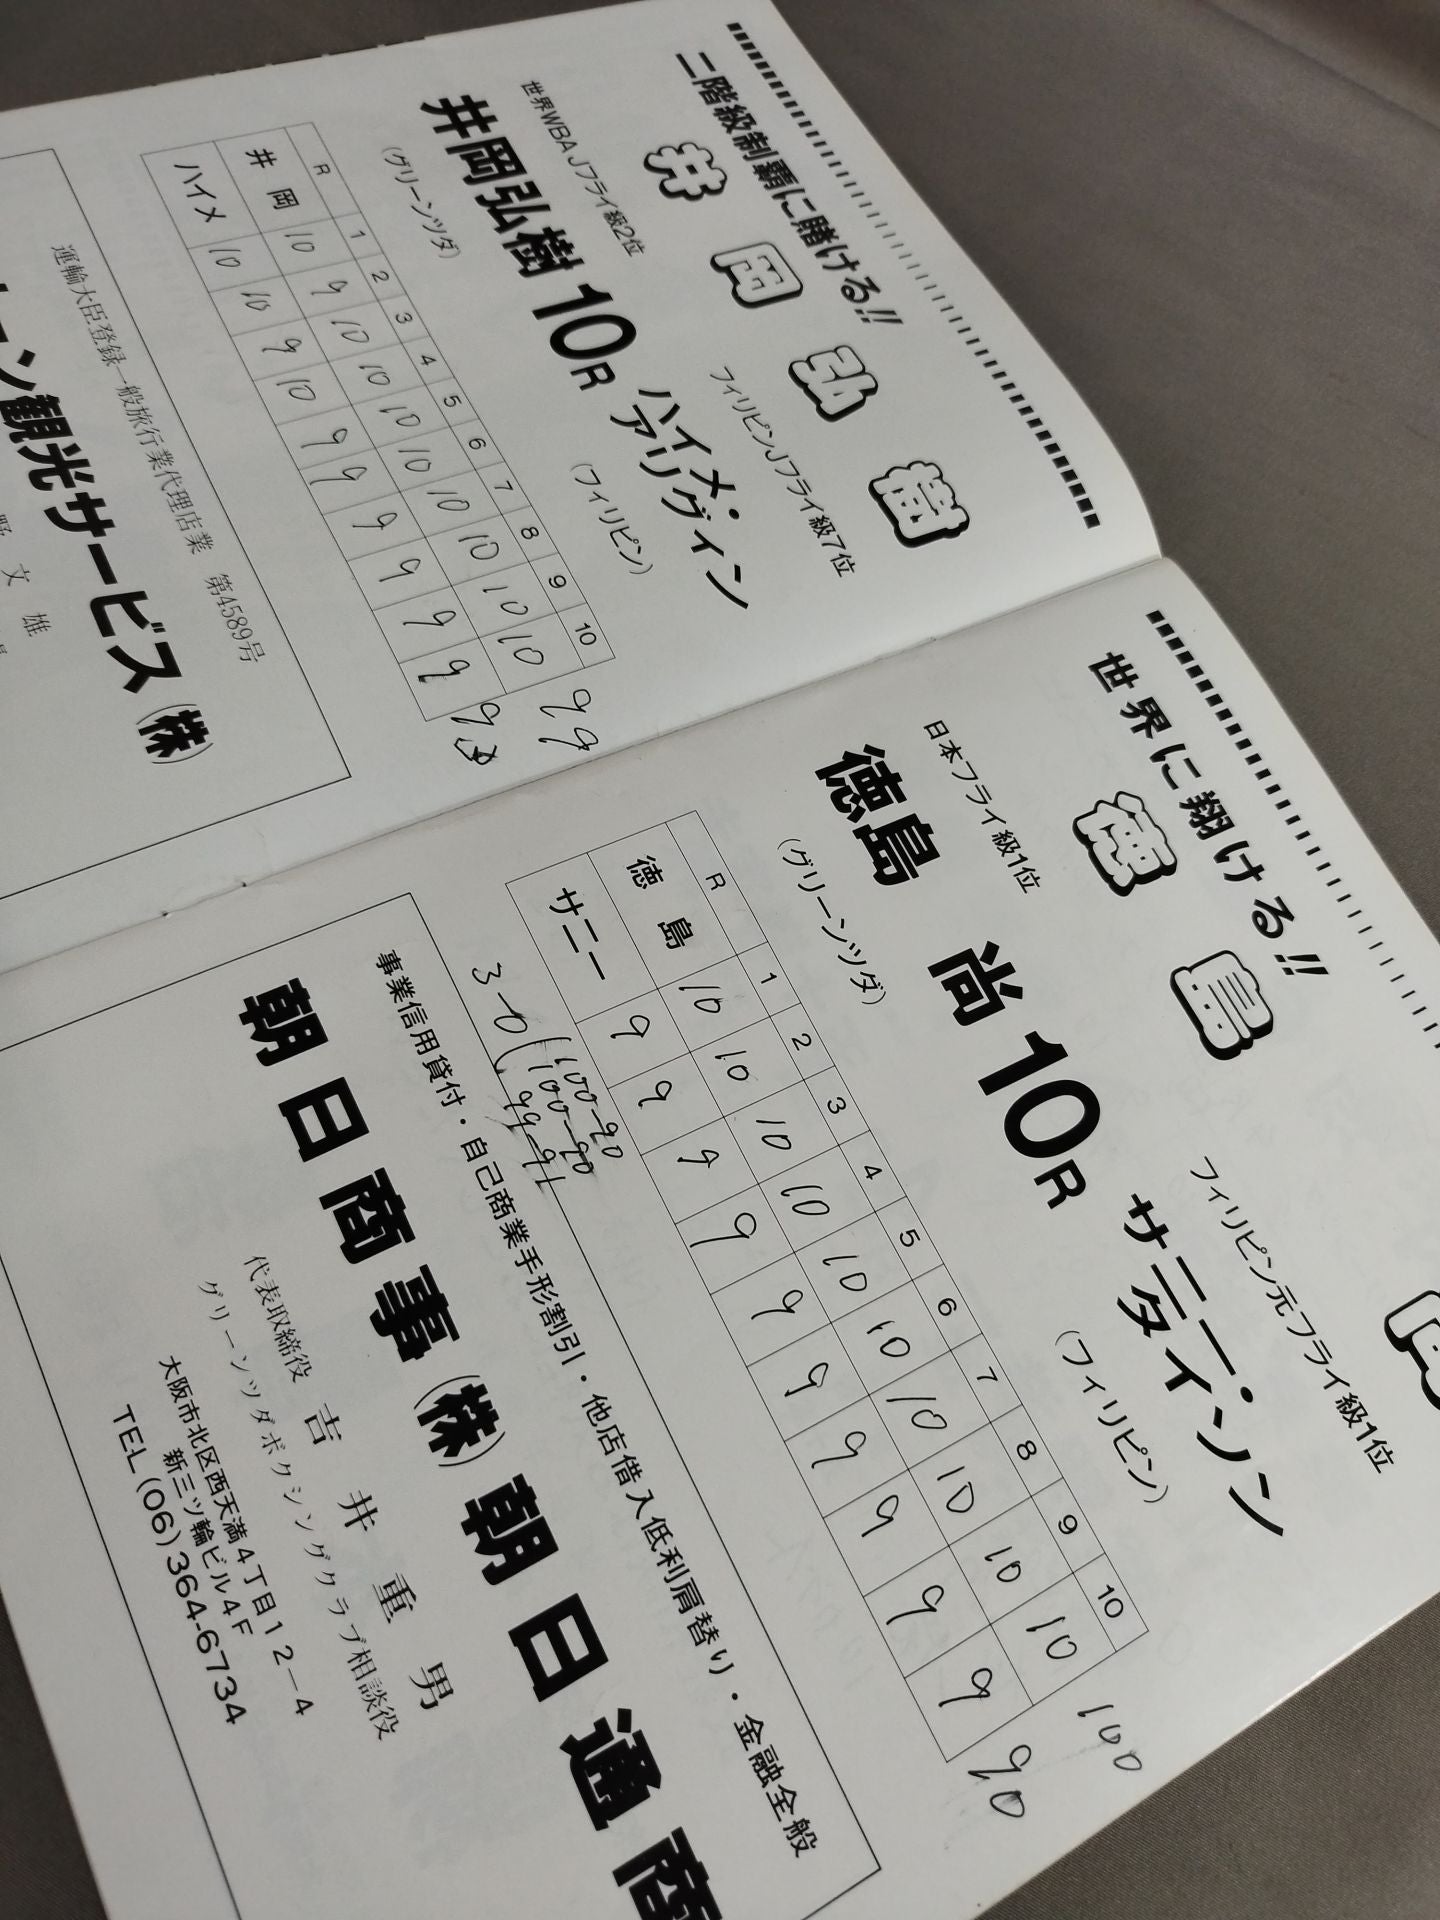 二階級制覇に賭ける!!
井岡弘樹
世界WBA Jフライ級2位
井岡弘樹
(グリーンツダ)
10R
フィリピンJフライ級7位
ハイメ・
アリグィン
(フィリピン)
R 1 2 3 4 5 6 7 8 9 10
井岡 10 9 10 10 10 10 10 10 10 10 99
ハイメ 10 10 9 10 9 9 9 9 9 9
運輸大臣登録一般旅行業代理店業 第4589号
ン観光サービス(株)
文雄
世界に翔ける!!
徳島
日本フライ級1位
徳島 尚
(グリーンツダ)
10R
フィリピン元フライ級1位
サニー・
タイソン
(フィリピン)
R 1 2 3 4 5 6 7 8 9 10
徳島 10 10 10 10 10 10 10 10 10 10 100
サニー 9 9 9 9 9 9 9 9 9 9 90
3-0
100-90
100-90
99-91
事業信用貸付・自己商業手形割引・他店借入低利肩替り・金融全般
朝日商事(株)朝日通商
代表取締役 吉井重男
グリーンツダボクシングクラブ相談役
大阪市北区西天満4丁目12-4
新三ツ輪ビル4F
TEL(06)364-6734